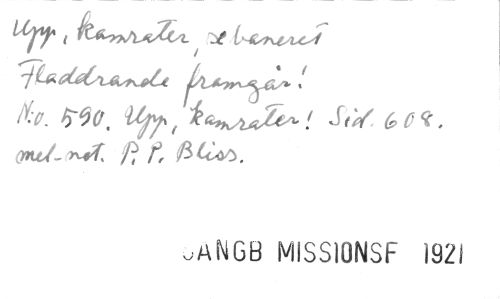 Upp, kamrater, se baneret
Fladdrande framgår!
N:o. 590. Upp, kamrater! Sid. 608.
mel-not. P. P. Bliss.
SANGB MISSIONSF 1921